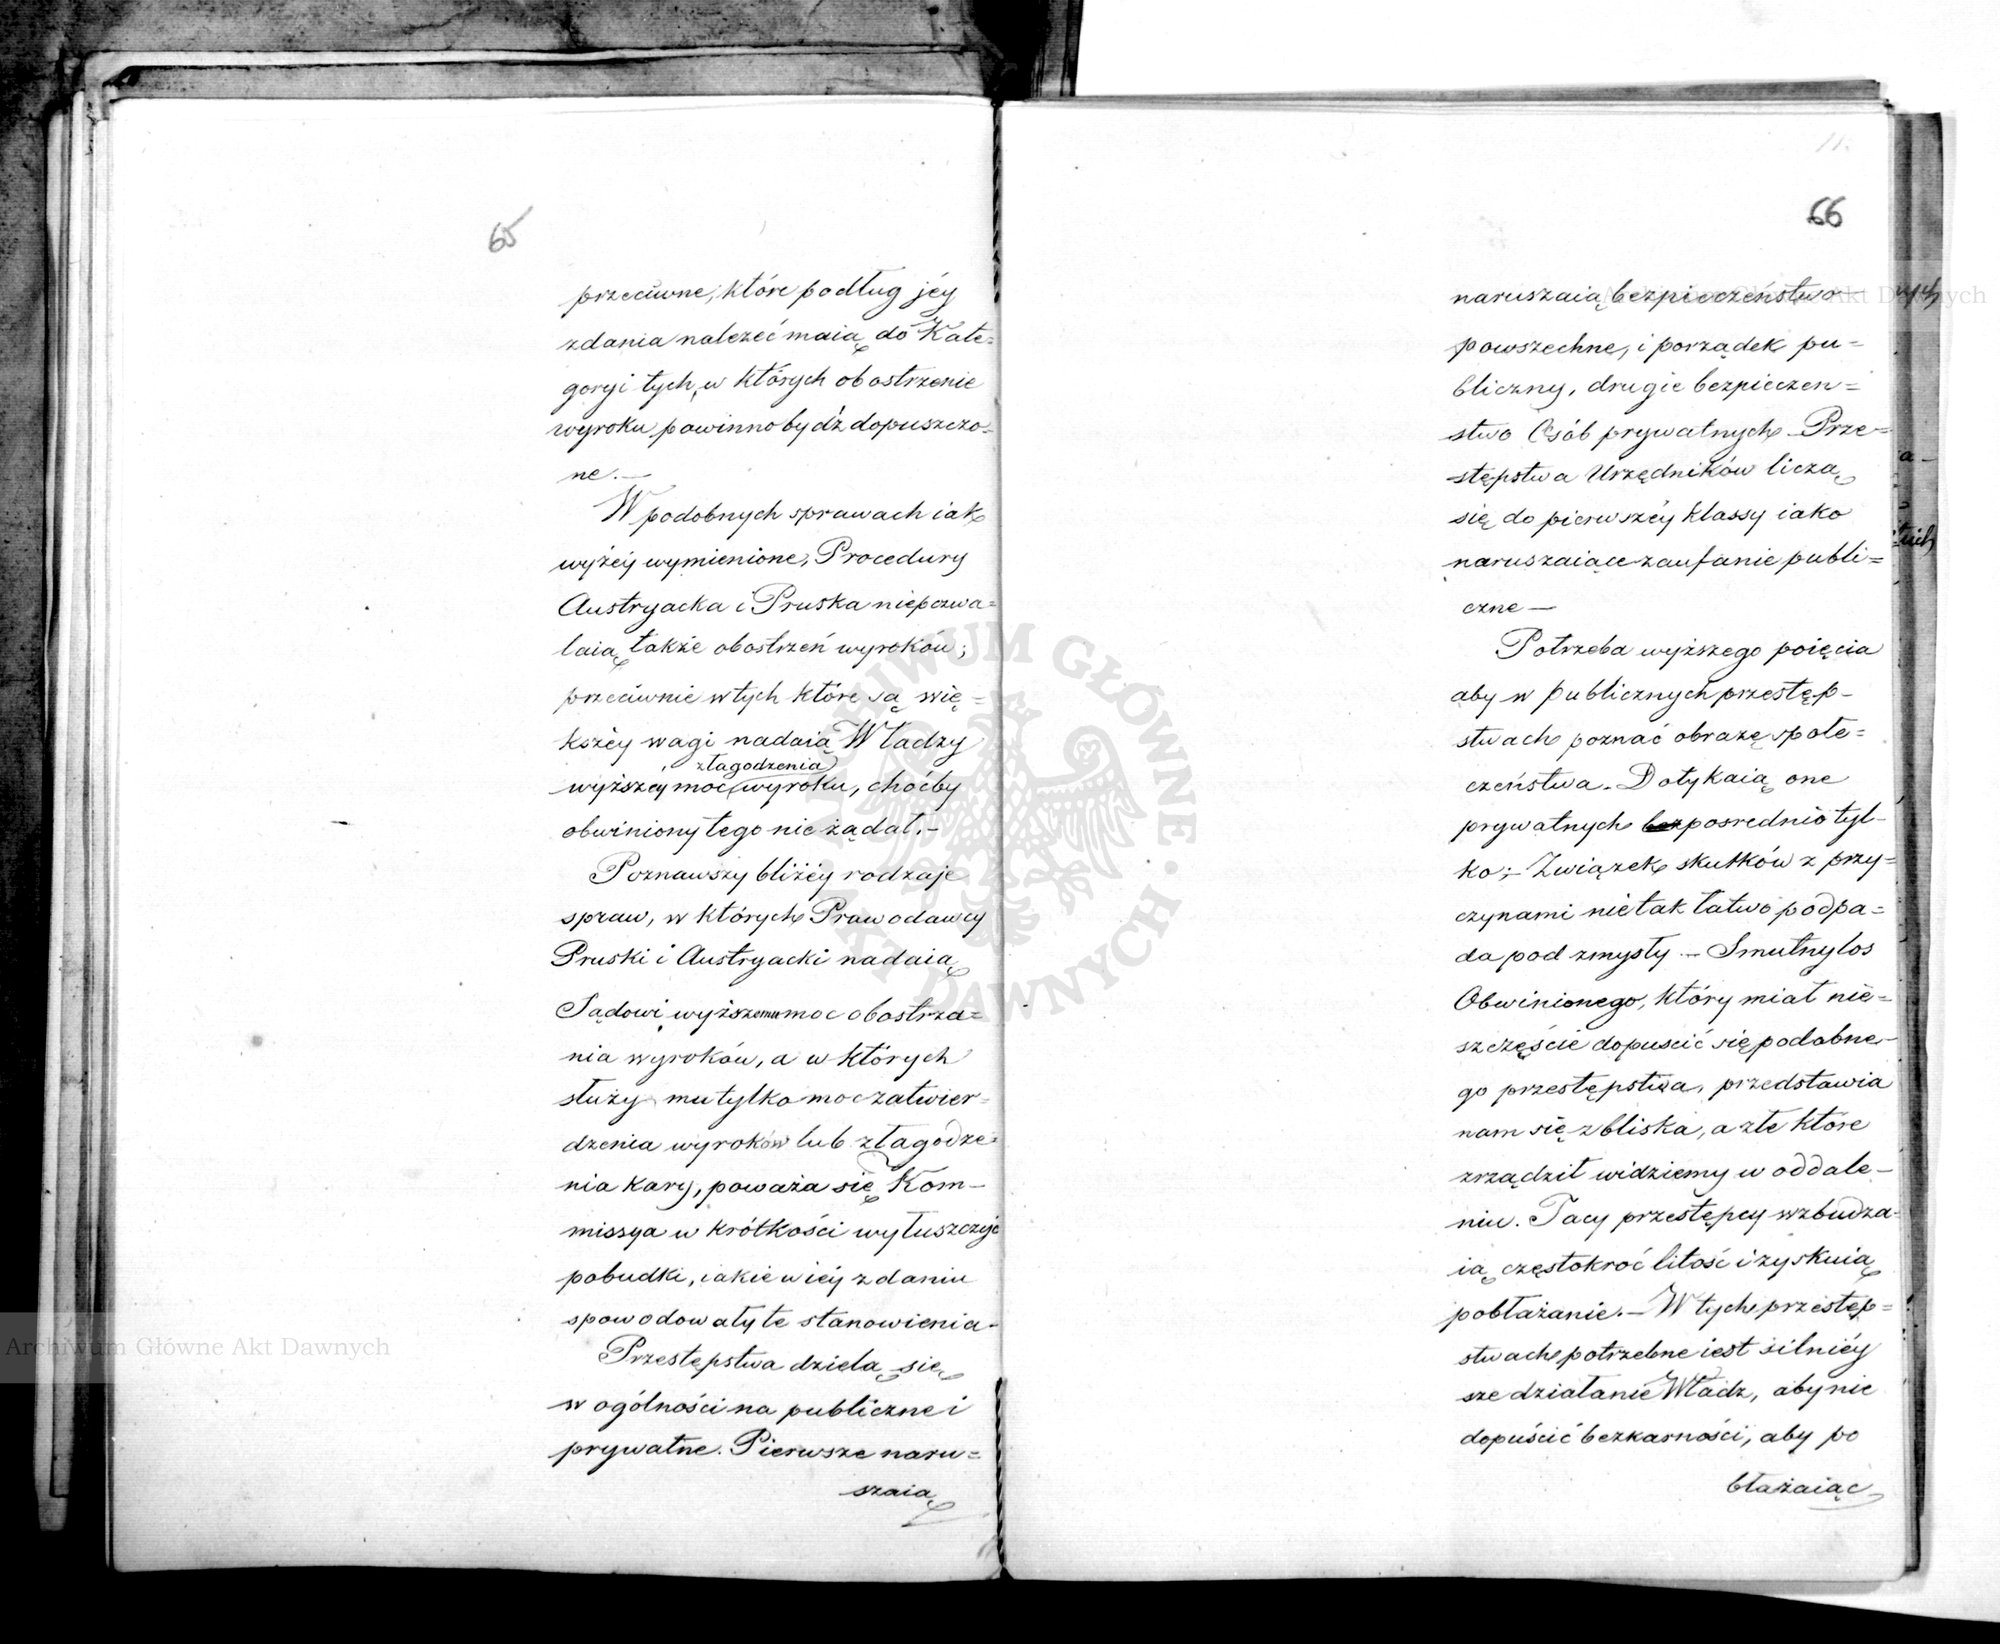 65
przeciwne, które podług jéy
zdania należeć maią do Kate=
goryi tych, w których obostrzenie
wyroku powinno bydź dopuszczo=
ne. —
W podobnych sprawach iak
wyżéy wymienione, Procedury
Austryacka i Pruska niepozwa=
laią także obostrzeń wyroków;
przeciwnie w tych które są wię=
kszéy wagi nadaią Władzy
złagodzenia
wyższéy moc wyroku, choćby
obwiniony tego nie żądał. —
Poznawszy bliżéy rodzaje
spraw, w których Prawodawcy
Pruski i Austryacki nadaią
Sądowi wyższemu moc obostrza=
nia wyroków, a w których
służy mu tylko moc zatwier=
dzenia wyroków lub złagodze=
nia kary, poważa się Kom—
missya w krótkości wyłuszczyć
pobudki, iakie w iéy zdaniu
spowodowały te stanowienia.
Przestępstwa dzielą się
w ogólności na publiczne i
prywatne. Pierwsze naru=
szaią
66
naruszaią bezpieczeństwo
powszechne, i porządek pu=
bliczny, drugie bezpieczeń=
stwo Osób prywatnych — Prze=
stępstwa Urzędników liczą
się do pierwszéy klassy iako
naruszaiące zaufanie publi=
czne —
Potrzeba wyższego poięcia
aby w publicznych przestęp—
stwach poznać obrazę społe=
czeństwa. Dotykaią one
prywatnych bez pośrednio tyl—
ko; — Związek skutków z przy—
czynami nie tak łatwo podpa=
da pod zmysły. — Smutny los
Obwinionego, który miał nie=
szczęście dopuścić się podobne—
go przestępstwa, przedstawia
nam się z bliska, a złe które
zrządził widziemy w oddale—
niu. Tacy przestępcy wzbudza=
ią częstokroć litość i zyskuią
pobłażanie. — W tych przestęp=
stwach potrzebne iest silniéy
sze działanie Władz, aby nie
dopuścić bezkarności, aby po
błażaiąc
Archiwum Główne Akt Dawnych
Archiwum Główne Akt Dawnych
ARCHIWUM GŁÓWNE AKT DAWNYCH